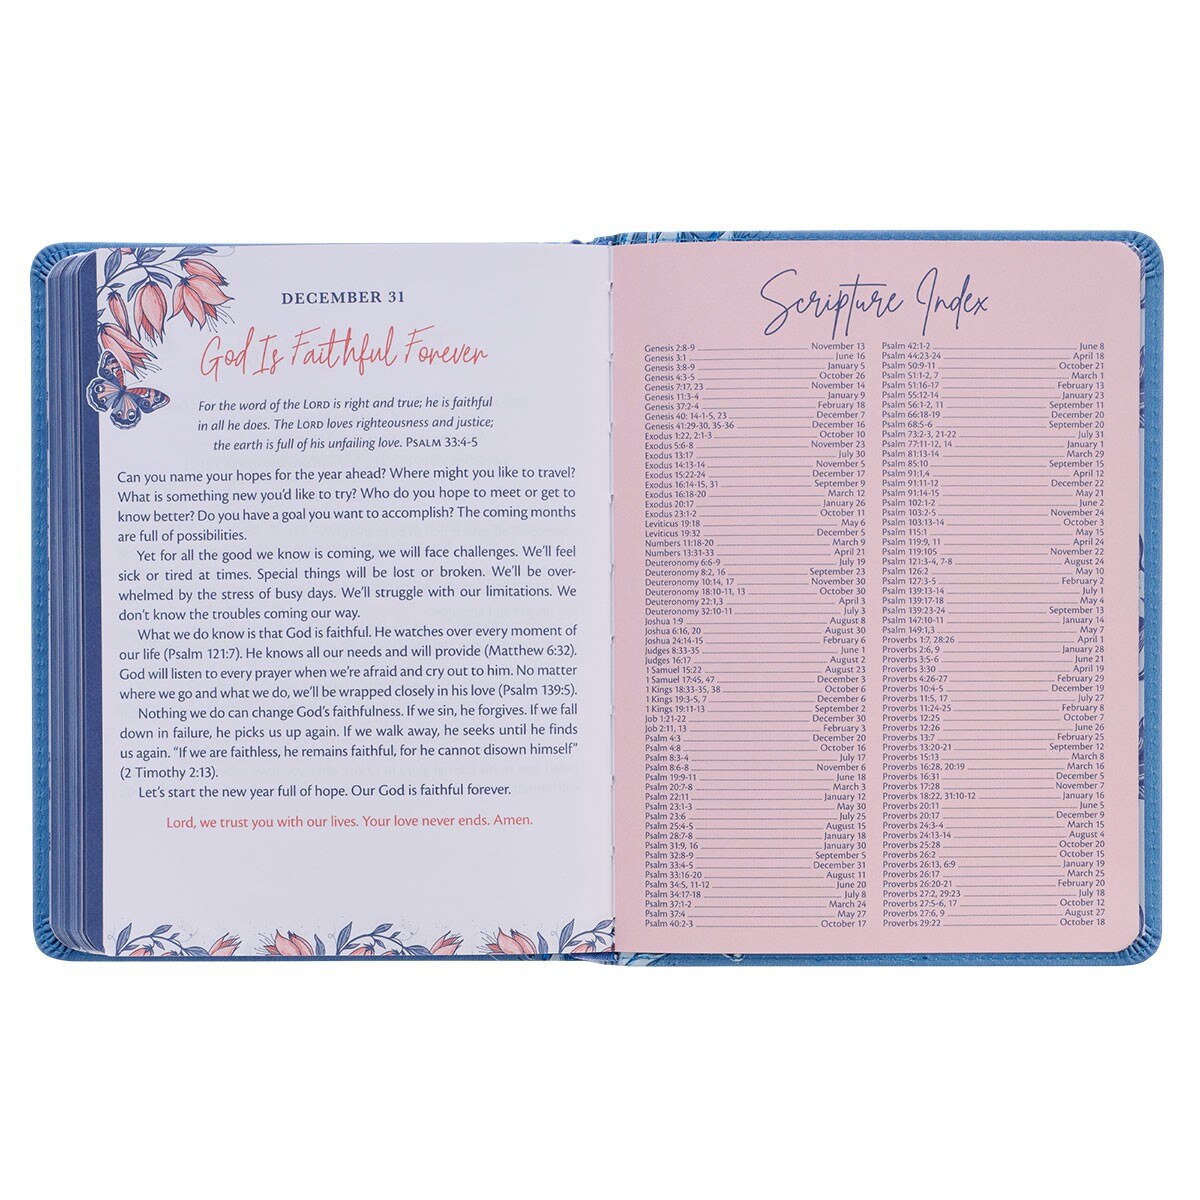 DECEMBER 31
God Is Faithful Forever
For the word of the LORD is right and true; he is faithful
in all he does. The LORD loves righteousness and justice;
the earth is full of his unfailing love. PSALM 33:4-5
Can you name your hopes for the year ahead? Where might you like to travel?
What is something new you'd like to try? Who do you hope to meet or get to
know better? Do you have a goal you want to accomplish? The coming months
are full of possibilities.
Yet for all the good we know is coming, we will face challenges. We'll feel
sick or tired at times. Special things will be lost or broken. We'll be over-
whelmed by the stress of busy days. We'll struggle with our limitations. We
don't know the troubles coming our way.
What we do know is that God is faithful. He watches over every moment of
our life (Psalm 121:7). He knows all our needs and will provide (Matthew 6:32).
God will listen to every prayer when we're afraid and cry out to him. No matter
where we go and what we do, we'll be wrapped closely in his love (Psalm 139:5).
Nothing we do can change God's faithfulness. If we sin, he forgives. If we fall
down in failure, he picks us up again. If we walk away, he seeks until he finds
us again. "If we are faithless, he remains faithful, for he cannot disown himself"
(2 Timothy 2:13).
Let's start the new year full of hope. Our God is faithful forever.
Lord, we trust you with our lives. Your love never ends. Amen.
Scripture Index
Genesis 2:8-9 November 13
Genesis 3:1 June 16
Genesis 3:8-9 January 5
Genesis 4:3-5 October 26
Genesis 7:17, 23 November 14
Genesis 11:3-4 January 9
Genesis 37:2-4 February 18
Genesis 40: 14-1-5, 23 December 7
Genesis 41:29-30, 35-36 December 16
Exodus 1:22, 2:1-3 October 10
Exodus 5:6-8 November 23
Exodus 13:17 July 30
Exodus 14:13-14 November 5
Exodus 15:22-24 December 17
Exodus 16:14-15, 31 September 9
Exodus 16:18-20 March 12
Exodus 20:17 January 26
Exodus 23:1-2 October 11
Leviticus 19:18 May 6
Leviticus 19:32 December 5
Numbers 11:18-20 March 9
Numbers 13:31-33 April 21
Deuteronomy 6:6-9 July 19
Deuteronomy 8:2, 16 September 23
Deuteronomy 10:14, 17 November 30
Deuteronomy 18:10-11, 13 October 30
Deuteronomy 22:1,3 April 3
Deuteronomy 32:10-11 July 3
Joshua 1:9 August 8
Joshua 6:16, 20 August 30
Joshua 24:14-15 February 6
Judges 8:33-35 June 1
Judges 16:17 August 2
1 Samuel 15:22 August 23
1 Samuel 17:45, 47 December 3
1 Kings 18:33-35, 38 October 6
1 Kings 19:3-5, 7 December 6
1 Kings 19:11-13 September 2
Job 1:21-22 December 30
Job 2:11, 13 February 3
Psalm 4:3 December 20
Psalm 4:8 October 16
Psalm 8:3-4 July 17
Psalm 8:6-8 November 6
Psalm 19:9-11 June 18
Psalm 20:7-8 March 3
Psalm 22:11 January 12
Psalm 23:1-3 May 30
Psalm 23:6 July 25
Psalm 25:4-5 August 15
Psalm 28:7-8 January 18
Psalm 31:9, 16 January 30
Psalm 32:8-9 September 5
Psalm 33:4-5 December 31
Psalm 33:16-20 August 11
Psalm 34:5, 11-12 June 20
Psalm 34:17-18 July 8
Psalm 37:1-2 March 24
Psalm 37:4 May 27
Psalm 40:2-3 October 17
Psalm 42:1-2 June 8
Psalm 44:23-24 April 18
Psalm 50:9-11 October 21
Psalm 51:1-2, 7 March 1
Psalm 51:16-17 February 13
Psalm 55:12-14 January 23
Psalm 56:1-2, 11 September 11
Psalm 66:18-19 December 2
Psalm 68:5-6 September 20
Psalm 73:2-3, 21-22 July 31
Psalm 77:11-12, 14 January 1
Psalm 81:13-14 March 29
Psalm 85:10 September 15
Psalm 91:1,4 April 12
Psalm 91:11-12 December 22
Psalm 91:14-15 May 21
Psalm 102:1-2 June 2
Psalm 103:2-5 November 24
Psalm 103:13-14 October 3
Psalm 115:1 May 15
Psalm 119:9, 11 April 24
Psalm 119:105 November 22
Psalm 121:3-4, 7-8 August 24
Psalm 126:2 May 10
Psalm 127:3-5 February 2
Psalm 139:13-14 July 1
Psalm 139:17-18 May 4
Psalm 139:23-24 September 13
Psalm 147:10-11 January 14
Psalm 149:1,3 May 7
Proverbs 1:7, 28:26 April 1
Proverbs 2:6, 9 January 28
Proverbs 3:5-6 June 21
Proverbs 3:30 April 19
Proverbs 4:26-27 February 29
Proverbs 10:4-5 December 19
Proverbs 11:5, 17 July 27
Proverbs 11:24-25 February 8
Proverbs 12:25 October 7
Proverbs 12:26 June 26
Proverbs 13:7 February 25
Proverbs 13:20-21 September 12
Proverbs 15:13 March 8
Proverbs 16:28, 20:19 March 16
Proverbs 16:31 December 5
Proverbs 17:28 November 7
Proverbs 18:22, 31:10-12 January 16
Proverbs 20:11 June 5
Proverbs 20:17 December 9
Proverbs 24:3-4 March 15
Proverbs 24:13-14 August 4
Proverbs 25:28 October 20
Proverbs 26:2 October 15
Proverbs 26:13, 6:9 January 19
Proverbs 26:17 March 25
Proverbs 26:20-21 February 20
Proverbs 27:2, 29:23 July 18
Proverbs 27:5-6, 17 October 12
Proverbs 27:6, 9 August 27
Proverbs 29:22 October 18